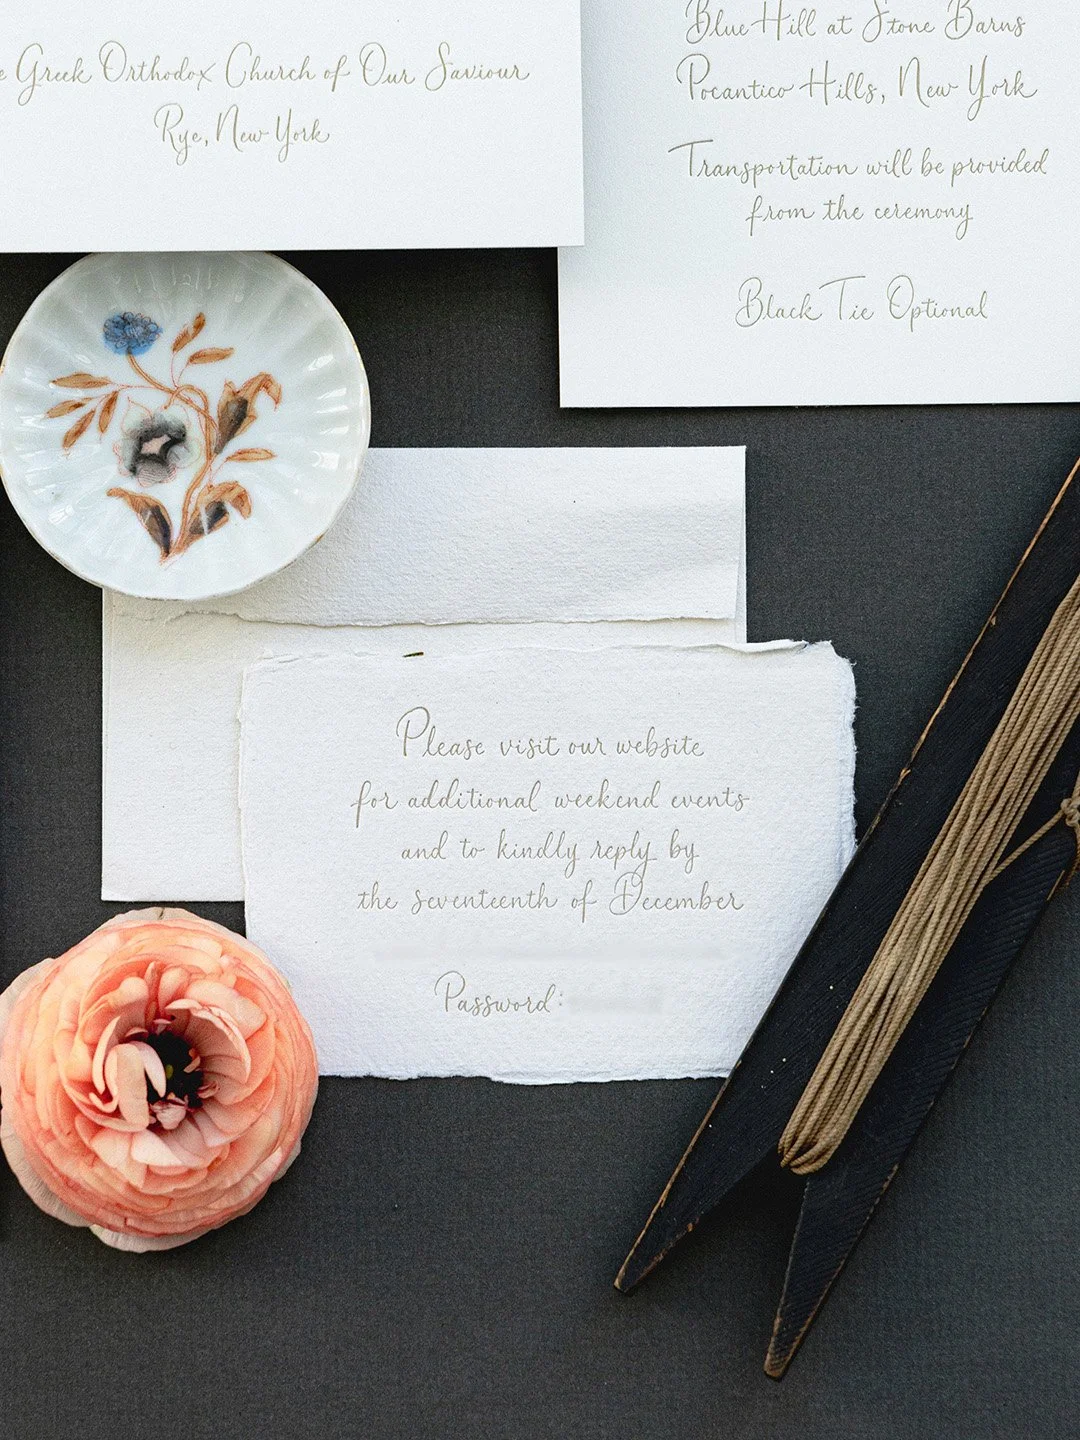 Greek Orthodox Church of Our Saviour
Rye, New York
Blue Hill at Stone Barns
Pocantico Hills, New York
Transportation will be provided
from the ceremony
Black Tie Optional
Please visit our website
for additional weekend events
and to kindly reply by
the seventeenth of December
Password: